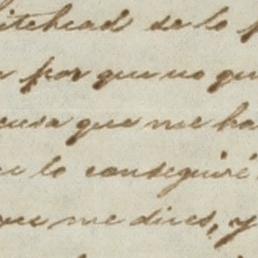 itehead de lo
por que no que
cusa que me ha
lo conseguiré
que me dices, y